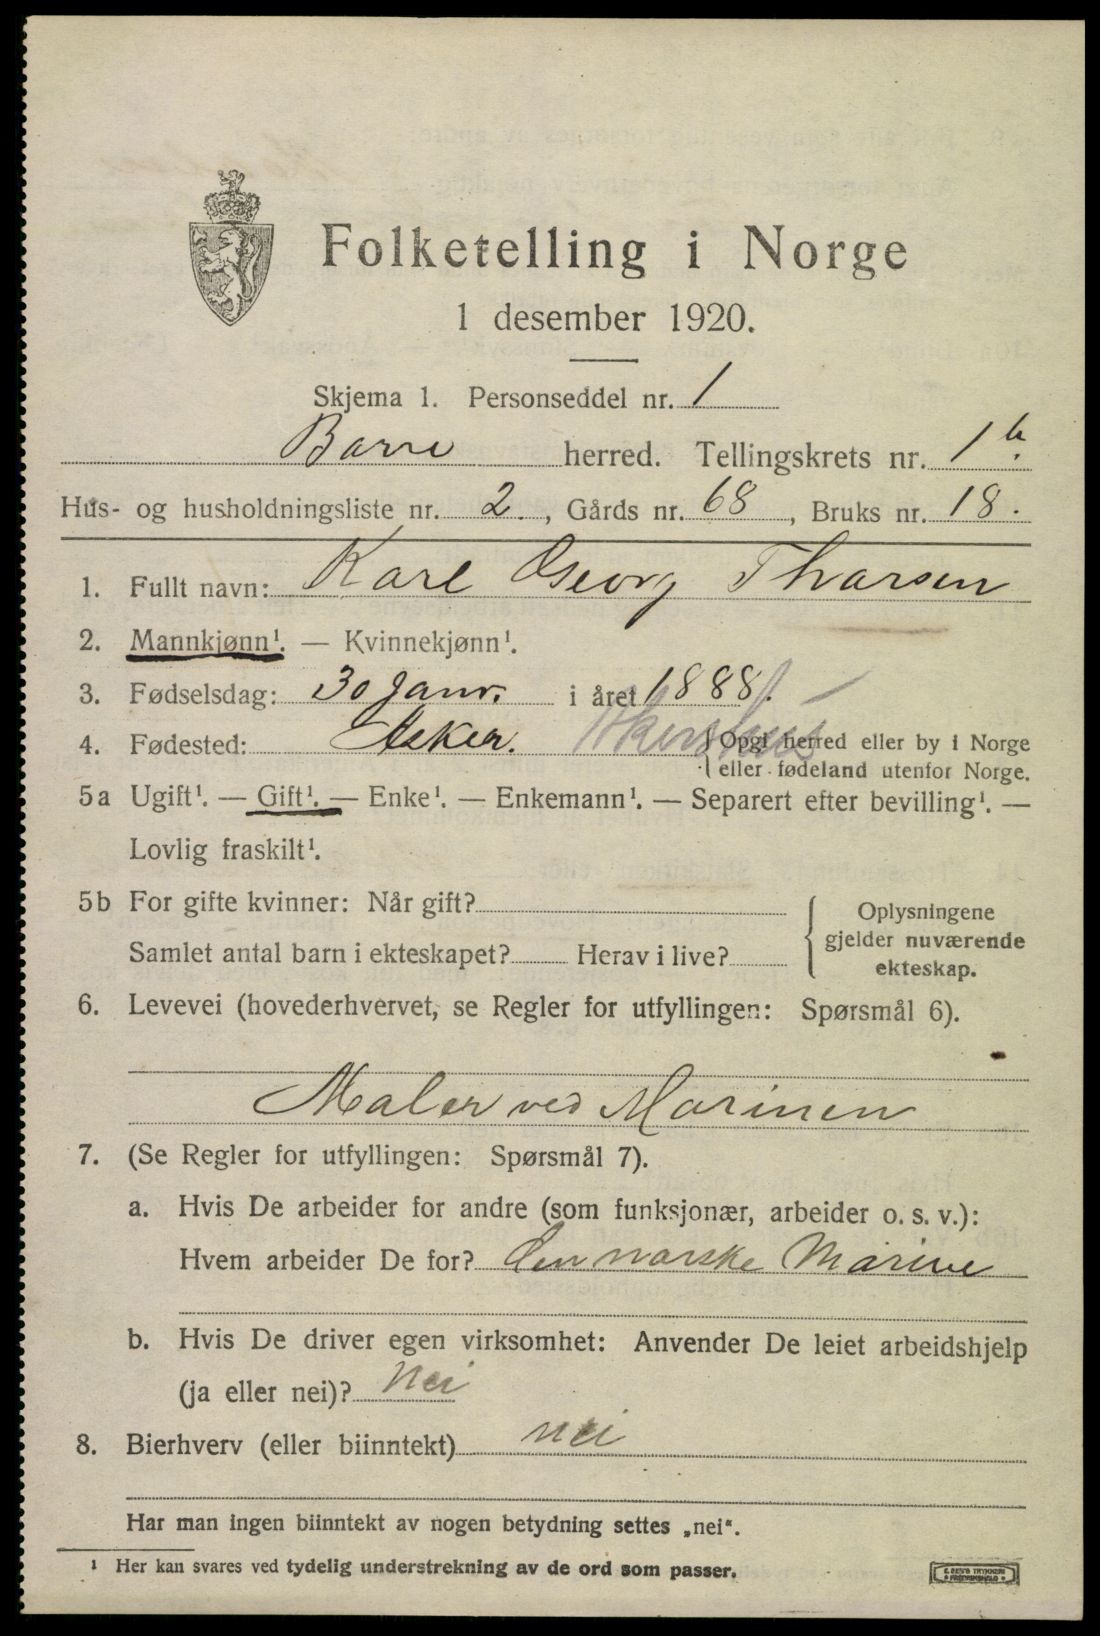 Folketelling i Norge
1 desember 1920.
Skjema 1. Personseddel nr. 1
Borre herred. Tellingskrets nr. 1 b.
Hus- og husholdningsliste nr. 2., Gårds nr. 68, Bruks nr. 18.
1. Fullt navn: Karl Georg Thorsen
2. Mannkjønn¹. — Kvinnekjønn¹.
3. Fødselsdag: 30 Janr. i året 1888.
4. Fødested: Asker. Akershus { Opgi herred eller by i Norge
eller fødeland utenfor Norge.
5a Ugift¹. — Gift¹. — Enke¹. — Enkemann¹. — Separert efter bevilling¹. —
Lovlig fraskilt¹.
5b For gifte kvinner: Når gift?
Samlet antal barn i ekteskapet? Herav i live?
Oplysningene
gjelder nuværende
ekteskap.
6. Levevei (hovederhvervet, se Regler for utfyllingen: Spørsmål 6).
Maler ved Marinen
7. (Se Regler for utfyllingen: Spørsmål 7).
a. Hvis De arbeider for andre (som funksjonær, arbeider o. s. v.):
Hvem arbeider De for? den norske Marine
b. Hvis De driver egen virksomhet: Anvender De leiet arbeidshjelp
(ja eller nei)? Nei
8. Bierhverv (eller biinntekt) nei
Har man ingen biinntekt av nogen betydning settes „nei“.
¹ Her kan svares ved tydelig understrekning av de ord som passer.